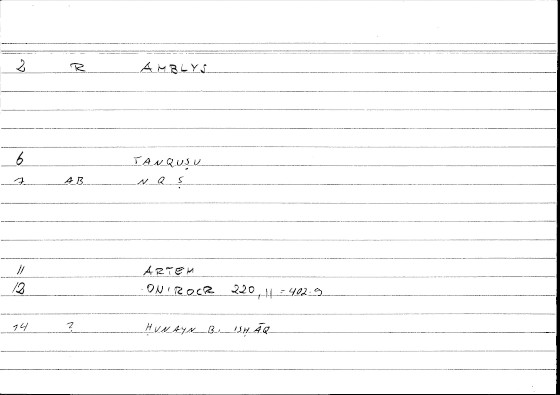 2 R AMBLYS
6 TANQUṢU
7 AB N Q Ṣ
11 ARTEM
12 ONIROCR 220, 11 = 402.9
14 ? ḤUNAYN B. ISḤĀQ